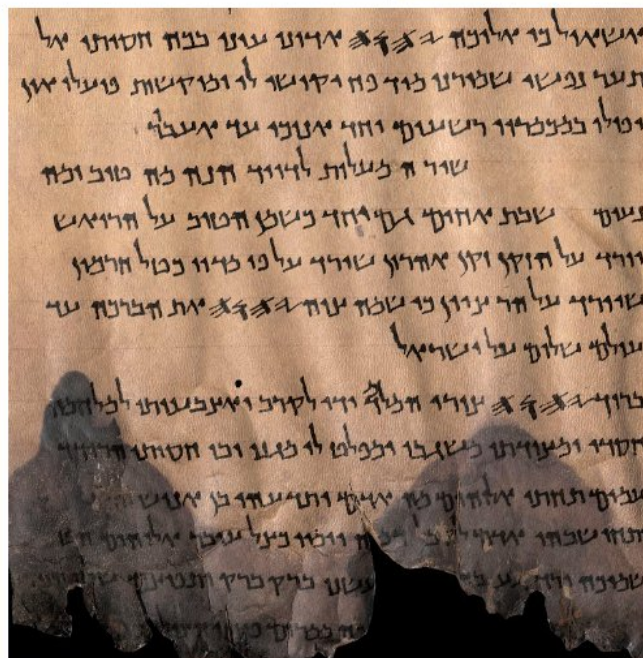 שאול כי אליכה 𐤉𐤄𐤅𐤄 אדוני עיני בכה חסיתי אל
תער נפשי שמורני מיד פח יקושו לי ומוקשות פועלי און
יפולו במכמריו רשעים יחד אנוכי עד אעבור
שיר המעלות לדויד הנה מה טוב ומה
נעים שבת אחים גם יחד כשמן הטוב על הרואש
יורד על הזקן זקן אהרון שירד על פי מדיו כטל חרמון
שיורד על הר ציון כי שמה צוה 𐤉𐤄𐤅𐤄 את הברכה עד
עולם שלום על ישראל
ברוך 𐤉𐤄𐤅𐤄 צורי המלמד ידי לקרב ואצבעותי למלחמה
חסדי ומצודתי משגבי ומפלט לי מגני ובו חסיתי הרודד
עמים תחתי אלוהים מה אדם ותדעהו בן אנוש
אדם ימיו כצל עובר אלוהים הט
שמיכה ורד ברק ברק